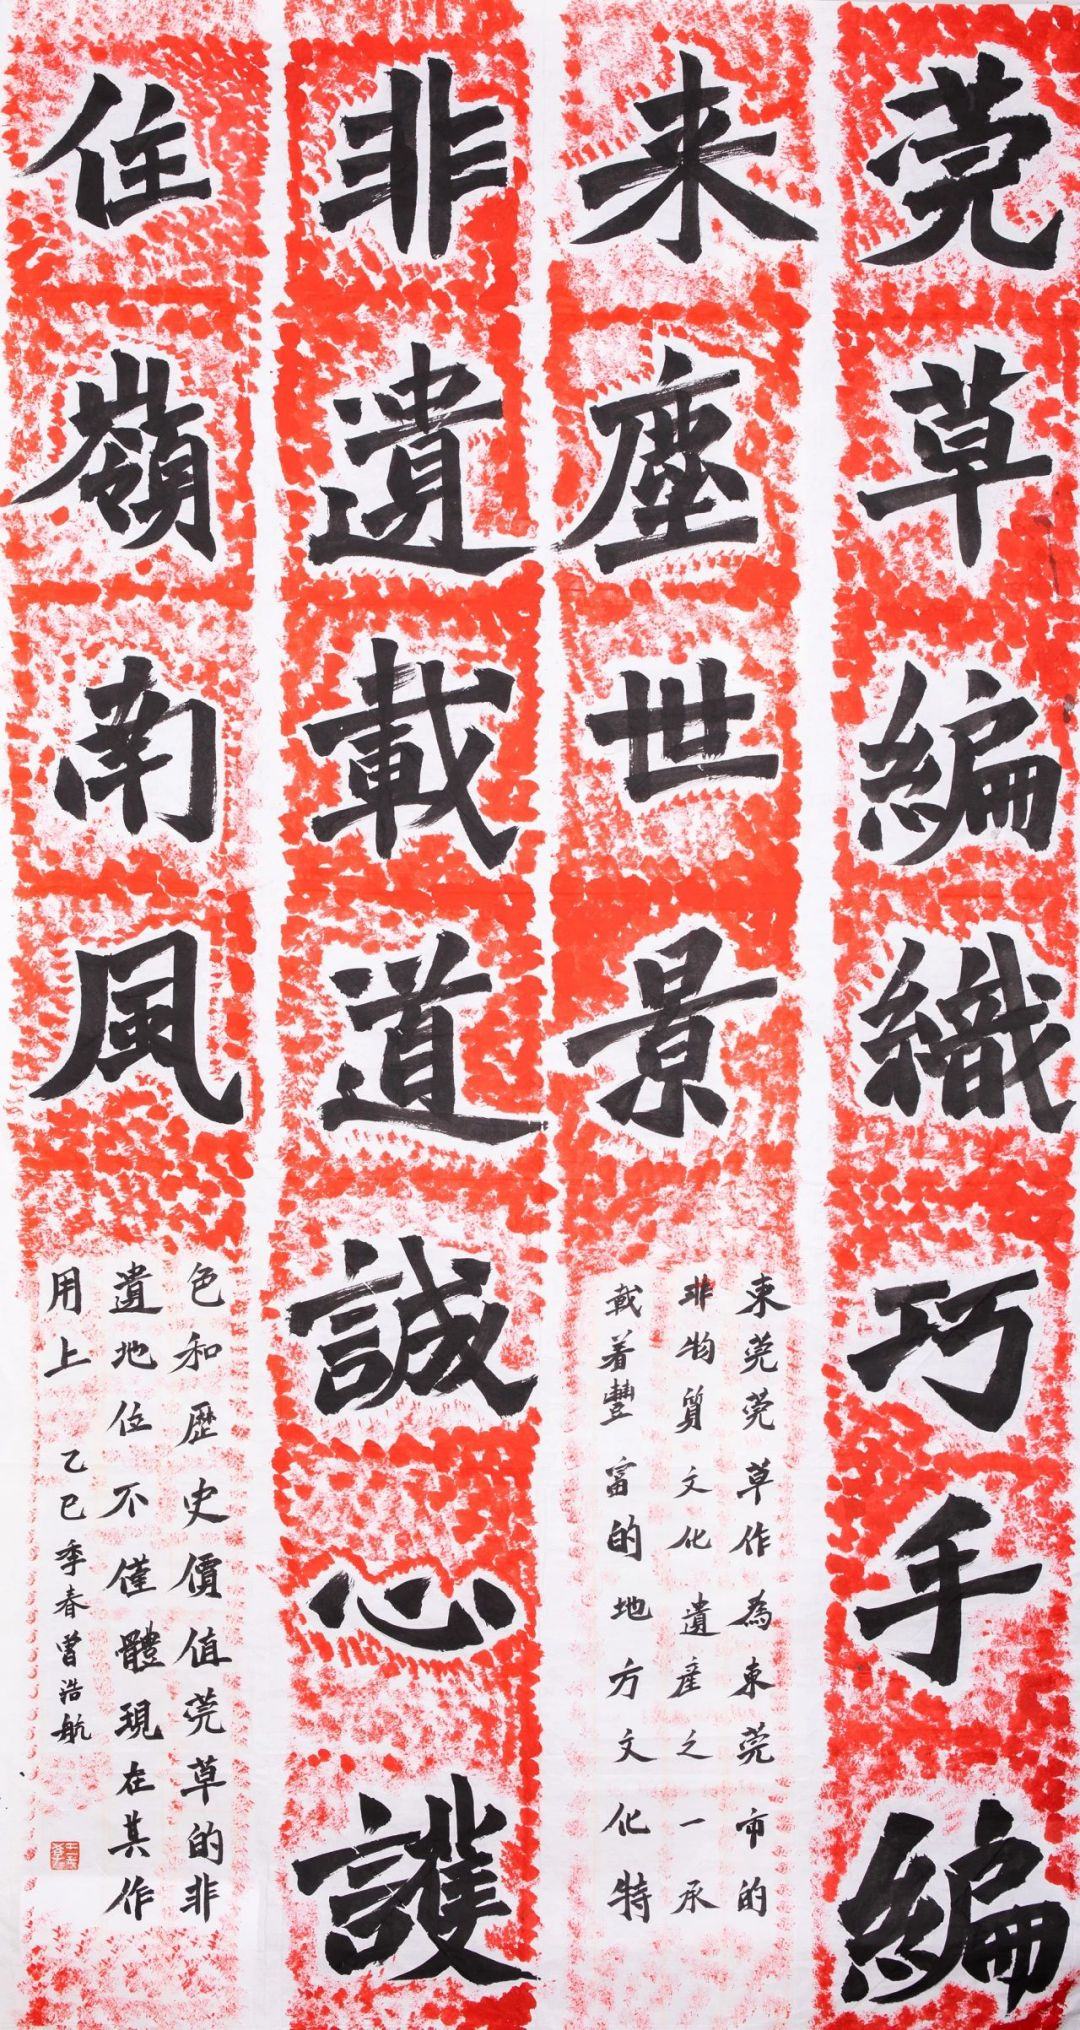 莞草編織巧手編
来塵世景
東莞莞草作為東莞市的
非物質文化遺産之一承
載着豐富的地方文化特
非遺載道誠心護
住嶺南風
色和歷史價值莞草的非
遺地位不僅體現在其作
用上 乙巳季春曾浩航